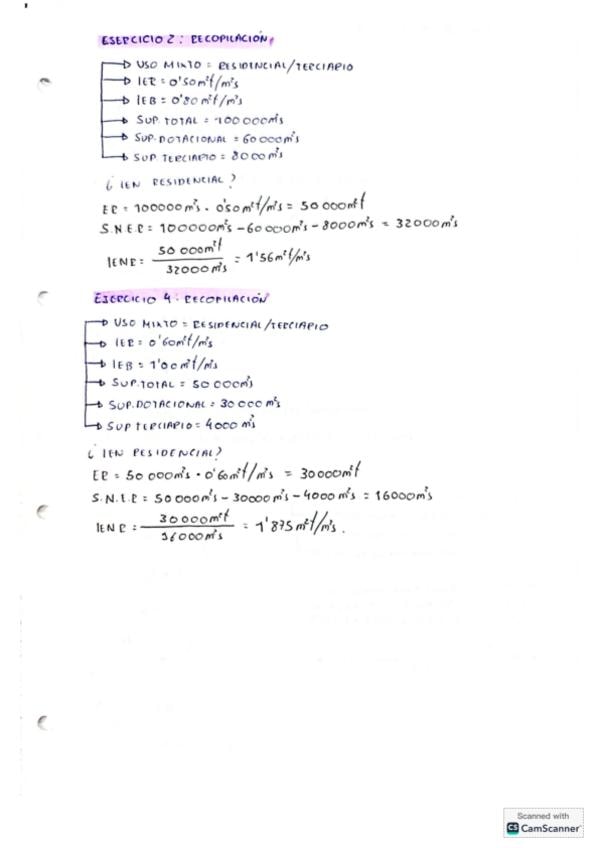 EJERCICIO 2: RECOPILACIÓN
USO MIXTO = RESIDENCIAL/TERCIARIO
IER = 0'50m²t/m²s
IEB = 0'80 m²t/m²s
SUP. TOTAL = 100000m²s
SUP. DOTACIONAL = 60000m²s
SUP. TERCIARIO = 8000m²s
¿ IEN RESIDENCIAL?
ER = 100000m²s · 0'50m²t/m²s = 50000m²t
S.N.E.R = 100000m²s - 60000m²s - 8000m²s = 32000m²s
IENR = 50000m²t / 32000m²s = 1'56m²t/m²s
EJERCICIO 4: RECOPILACIÓN
USO MIXTO = RESIDENCIAL/TERCIARIO
IER = 0'60m²t/m²s
IEB = 1'00m²t/m²s
SUP. TOTAL = 50000m²s
SUP. DOTACIONAL = 30000m²s
SUP TERCIARIO = 4000m²s
¿ IEN RESIDENCIAL?
ER = 50000m²s · 0'60m²t/m²s = 30000m²t
S.N.E.R = 50000m²s - 30000m²s - 4000m²s = 16000m²s
IENR = 30000m²t / 16000m²s = 1'875m²t/m²s.
Scanned with
CS CamScanner